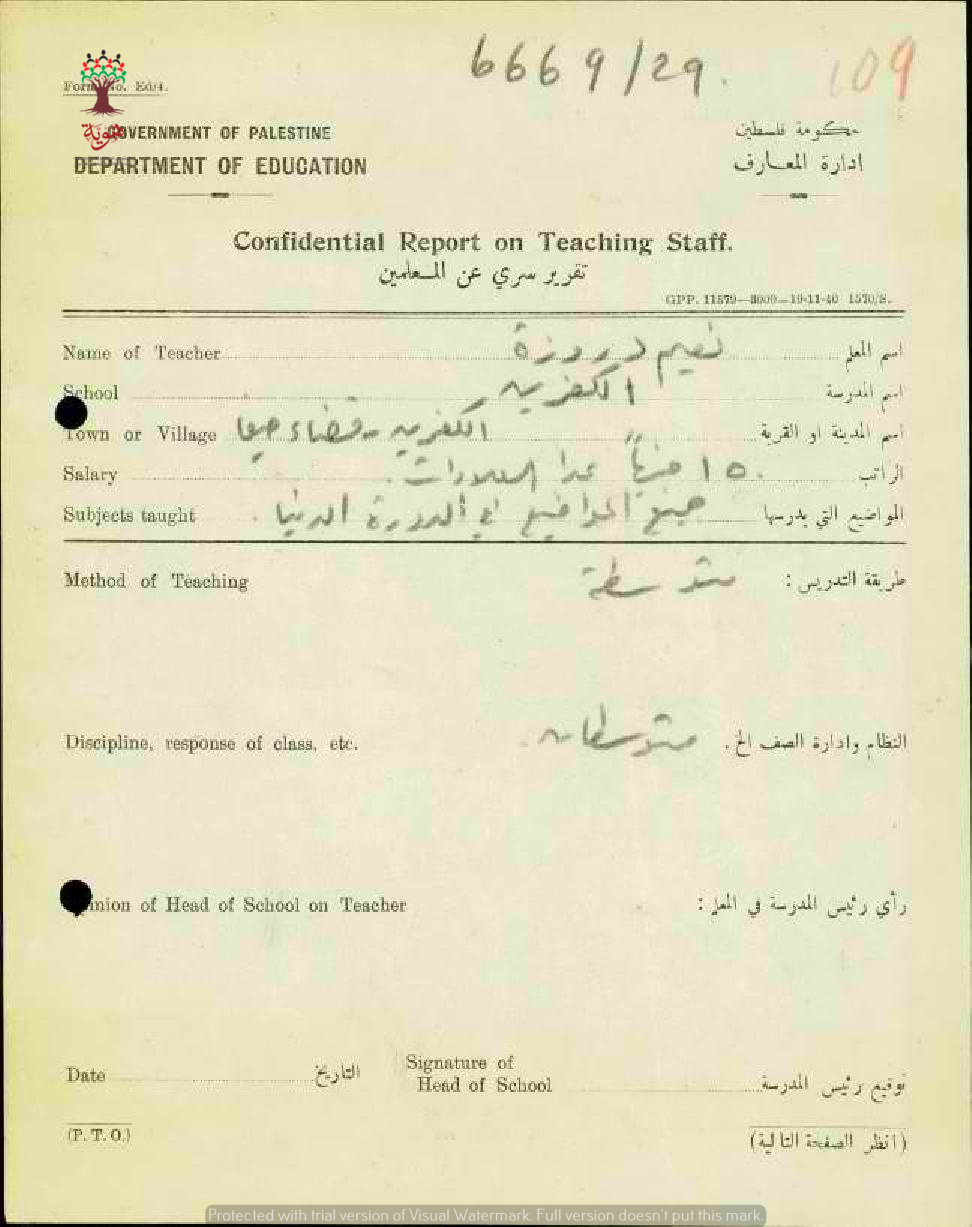 6669/29.
109
Form No. Ed/4.
هوية
GOVERNMENT OF PALESTINE
حكومة فلسطين
DEPARTMENT OF EDUCATION
ادارة المعارف
Confidential Report on Teaching Staff.
تقرير سري عن المعلمين
GPP. 11579—3000—19-11-40 1570/S.
Name of Teacher نعيم دروزة اسم المعلم
School الكفرين اسم المدرسة
Town or Village الكفرين - قضاء حيفا اسم المدينة او القرية
Salary عدا العلاوات . الراتب
Subjects taught جميع المواضيع في الدورة الدنيا . المواضيع التي يدرسها
Method of Teaching متوسطة طريقة التدريس :
Discipline, response of class, etc. متوسطان . النظام وادارة الصف الخ .
Opinion of Head of School on Teacher رأي رئيس المدرسة في المعلم :
Date التاريخ Signature of Head of School توقيع رئيس المدرسة
(P. T. O.) (انظر الصفحة التالية)
Protected with trial version of Visual Watermark. Full version doesn't put this mark.